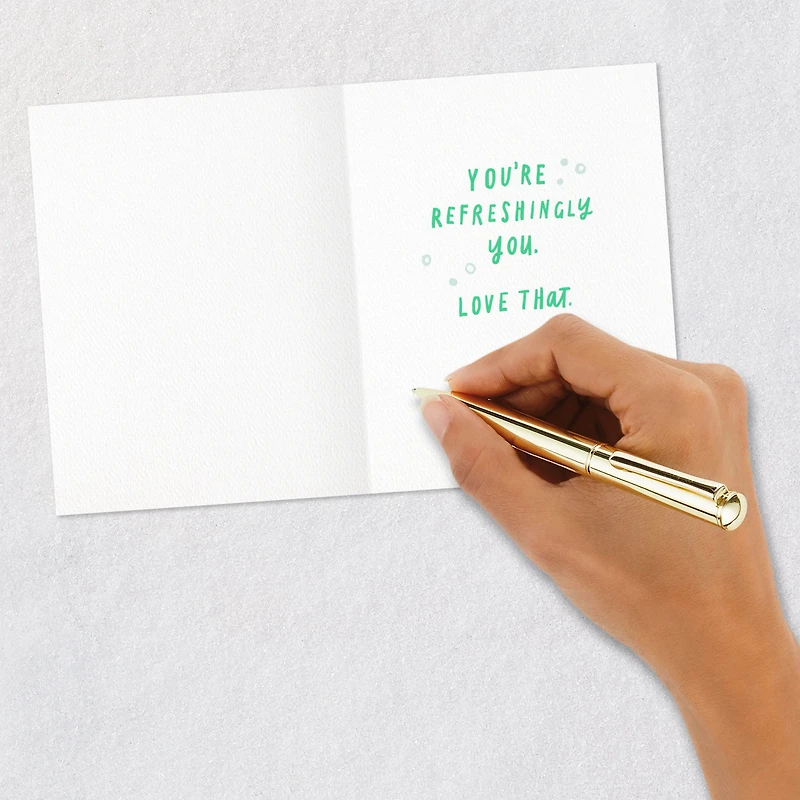 YOU'RE
REFRESHINGLY
YOU.
LOVE THAT.